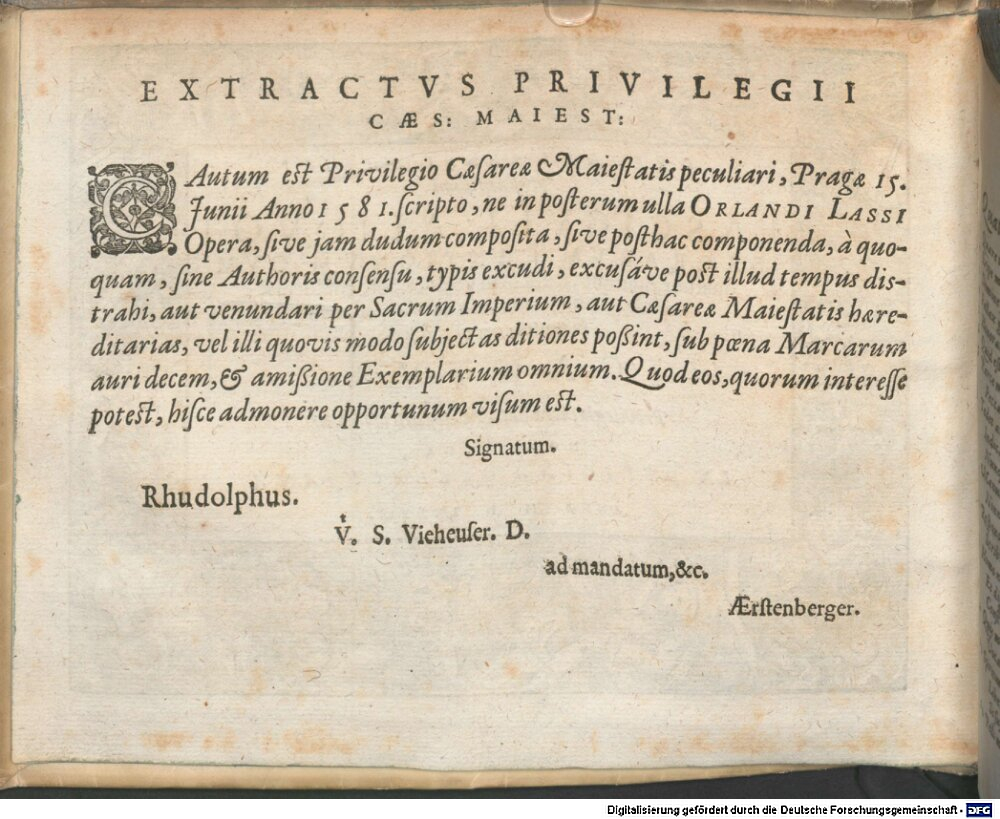 EXTRACTVS PRIVILEGII
CÆS: MAIEST:
CAutum est Privilegio Cæsareæ Maiestatis peculiari, Pragæ 15.
Junii Anno 1581. scripto, ne in posterum ulla ORLANDI LASSI
Opera, sive jam dudum composita, sive posthac componenda, à quo-
quam, sine Authoris consensu, typis excudi, excusáve post illud tempus dis-
trahi, aut venundari per Sacrum Imperium, aut Cæsareæ Maiestatis hære-
ditarias, vel illi quovis modo subjectas ditiones poßint, sub pœna Marcarum
auri decem, & amißione Exemplarium omnium. Quod eos, quorum interesse
potest, hisce admonere opportunum visum est.
Signatum.
Rhudolphus.
Vͭ. S. Vieheuser. D.
ad mandatum, &c.
Ærstenberger.
Digitalisierung gefördert durch die Deutsche Forschungsgemeinschaft - DFG